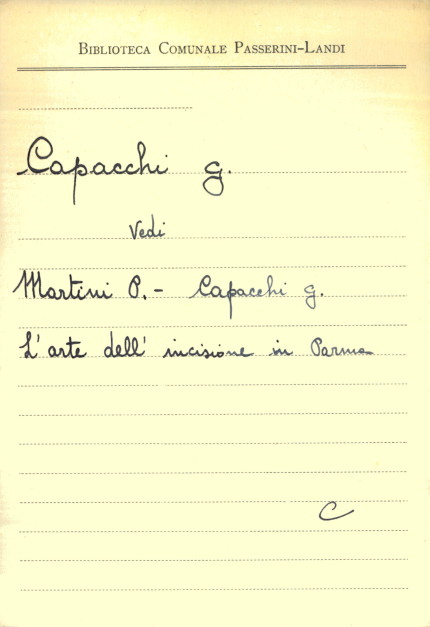 BIBLIOTECA COMUNALE PASSERINI-LANDI
Capacchi G.
Vedi
Martini P. - Capacchi G.
L'arte dell'incisione in Parma
C